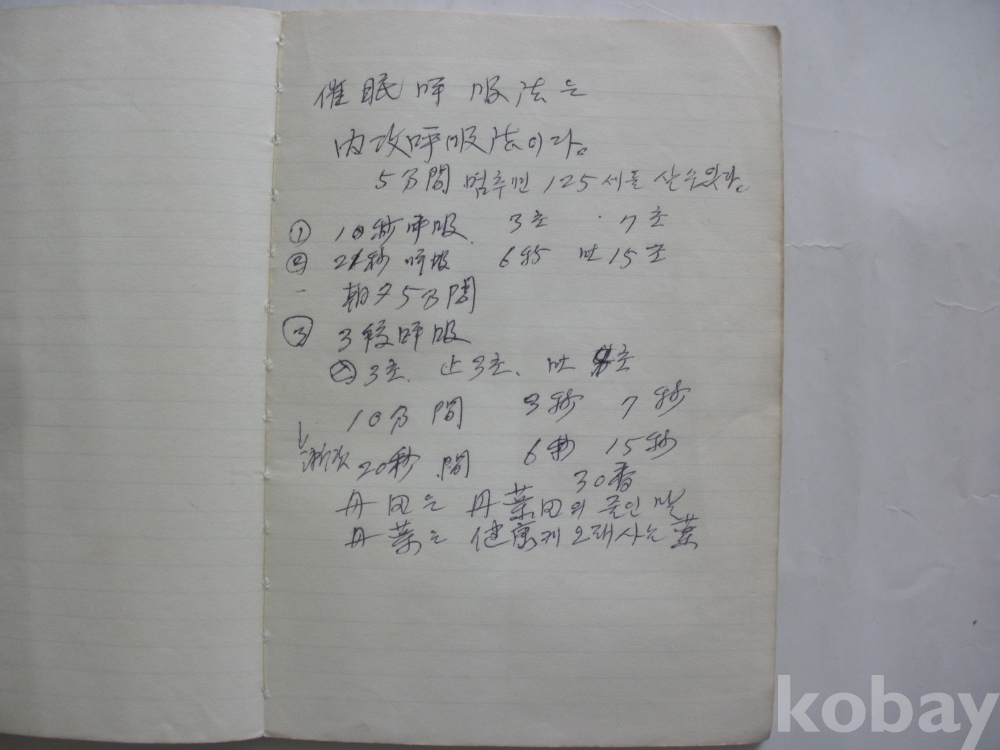 催眠呼吸法은
內攻呼吸法이다.
5分間 멈추면 125세를 살수있다.
① 10秒呼吸. 3초 · 7초
② 21秒呼吸 6秒 吐 15초
- 朝夕 5分間
③ 3段呼吸
入 3초. 止 3초. 吐 초
10分間 3秒 7秒
漸次 20秒 間 6秒 15秒
30番
丹田은 丹藥田의 줄인 말
丹藥은 健康케 오래사는 藥
kobay